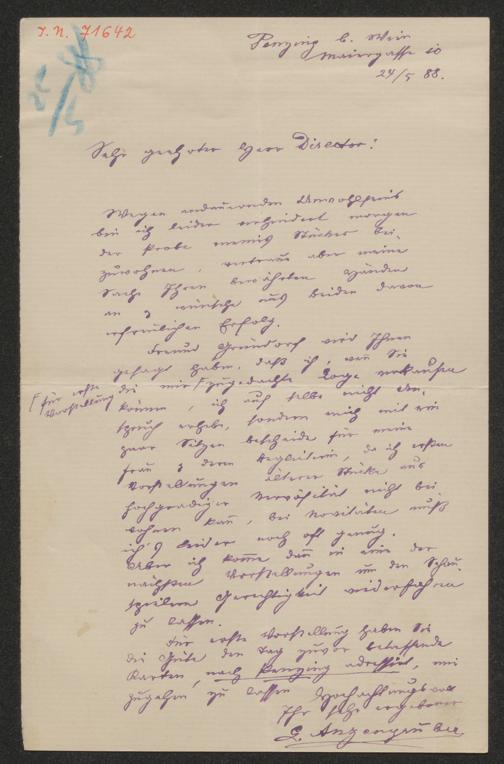 I.N. 71642
Penzing b. Wien
Maiergasse 10
24/5 88.
Sehr geehrter Herr Director!
Wegen andauernden Unwohlseins
bin ich leider verhindert morgen
der Probe meines Stückes bei-
zuwohnen, vertraue aber meine
Sache Ihren bewährten Händen
an & wünsche uns beiden davon
erfreulichen Erfolg.
Freund Gründorf wird Ihnen
gesagt haben, daß ich, wenn Sie
die mir zugedachte Loge verkaufen
für erste
Vorstellung
können, ich auf selbe nicht An-
spruch erhebe, sondern mich mit ein
paar Sitzen bescheide für meine
Frau & deren Begleiterin, da ich ersten
Vorstellungen älterer Stücke aus
hochgradiger Nervösität nicht bei
wohnen kann, bei Novitäten muß
ich's leider noch oft genug.
Aber ich komme dann in eine der
nächsten Vorstellungen um den Schau-
spielern Gerechtigkeit widerfahren
zu lassen.
Für erste Vorstellung haben Sie
die Güte den Tag zuvor betreffende
Karten, nach Penzing adressirt, mir
zugehen zu lassen
Hochachtungsvoll
Ihr sehr ergebener
L. Anzengruber